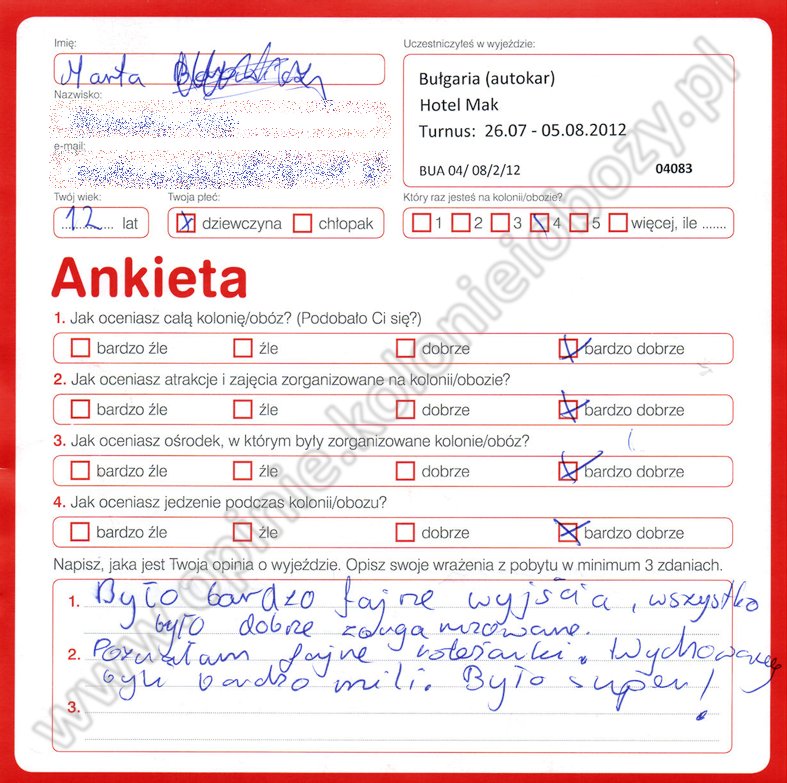 Imię:
Marta
Nazwisko:
e-mail:
Twój wiek:
12 lat
Twoja płeć:
dziewczyna chłopak
Uczestniczyłeś w wyjeździe:
Bułgaria (autokar)
Hotel Mak
Turnus: 26.07 - 05.08.2012
BUA 04/ 08/2/12 04083
Który raz jesteś na kolonii/obozie?
1 2 3 4 5 więcej, ile .......
Ankieta
1. Jak oceniasz całą kolonię/obóz? (Podobało Ci się?)
bardzo źle źle dobrze bardzo dobrze
2. Jak oceniasz atrakcje i zajęcia zorganizowane na kolonii/obozie?
bardzo źle źle dobrze bardzo dobrze
3. Jak oceniasz ośrodek, w którym były zorganizowane kolonie/obóz?
bardzo źle źle dobrze bardzo dobrze
4. Jak oceniasz jedzenie podczas kolonii/obozu?
bardzo źle źle dobrze bardzo dobrze
Napisz, jaka jest Twoja opinia o wyjeździe. Opisz swoje wrażenia z pobytu w minimum 3 zdaniach.
1. Było bardzo fajne wyjścia, wszystko
było dobrze
2. Poznałam fajne koleżanki. Wychowawcy
byli bardzo mili. Było super!
3.
www.opinie.kolonieiobozy.pl